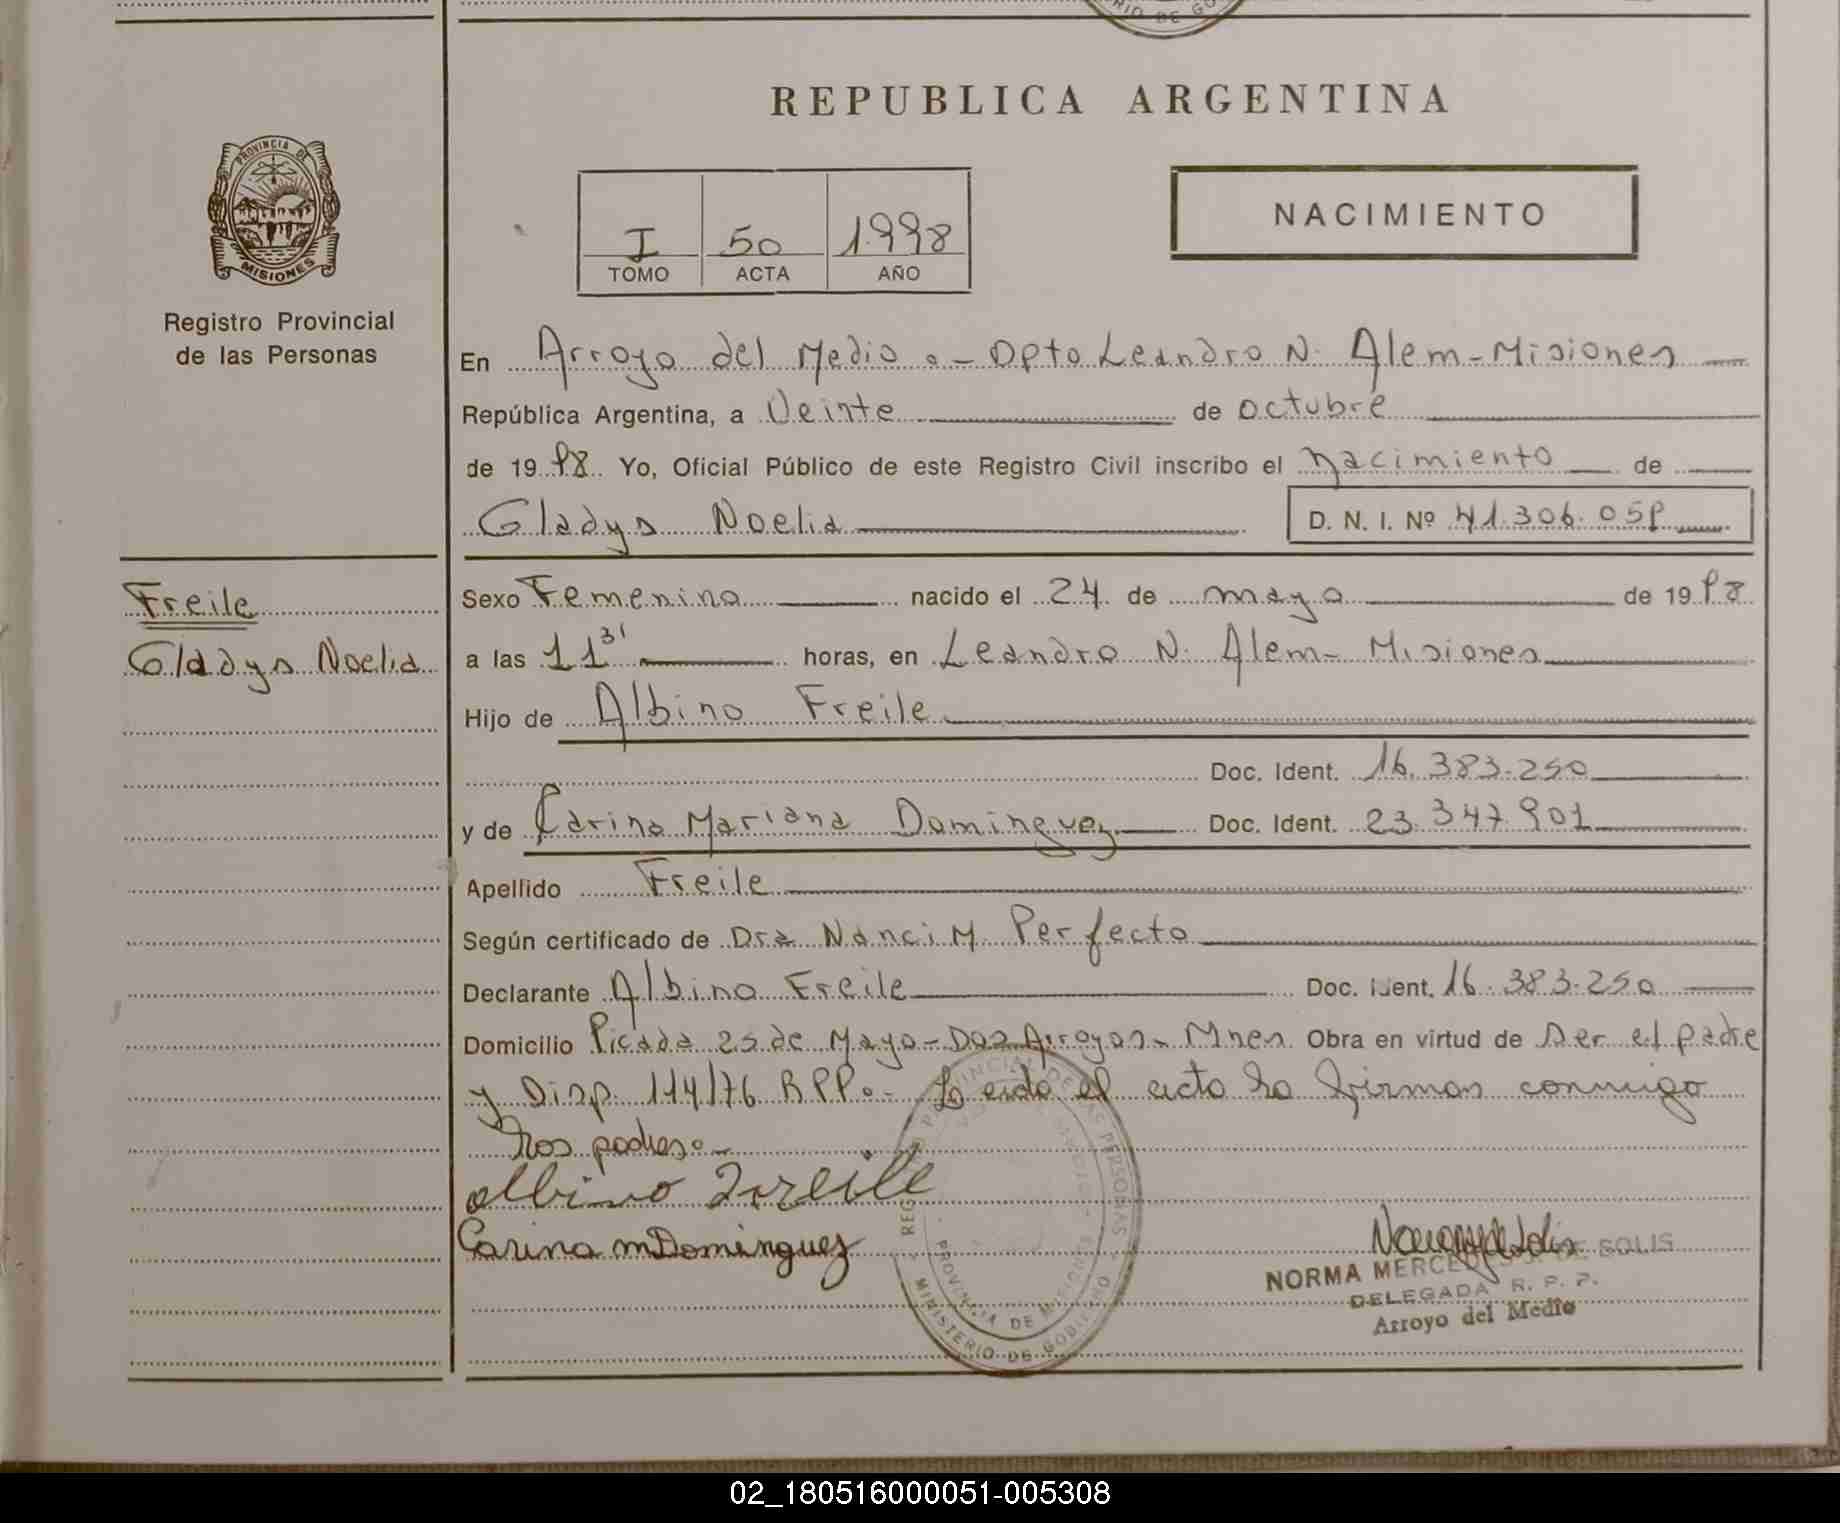 RIO DE GO
REPUBLICA ARGENTINA
PROVINCIA DE
MISIONES
Registro Provincial
de las Personas
I 50 1998
TOMO ACTA AÑO
NACIMIENTO
En Arroyo del Medio.- Dpto Leandro N. Alem-Misiones
República Argentina, a Veinte de octubre
de 1998 Yo, Oficial Público de este Registro Civil inscribo el nacimiento de
Gladys Noelia D. N. I. Nº 41.306.059
Freile
Gladys Noelia
Sexo Femenino nacido el 24 de mayo de 1998
a las 11 31 horas, en Leandro N. Alem- Misiones
Hijo de Albino Freile
Doc. Ident. 16.383.250
y de Carina Mariana Dominguez Doc. Ident. 23.347.901
Apellido Freile
Según certificado de Dra Nanci M. Perfecto
Declarante Albino Freile Doc. Ident. 16.383.250
Domicilio Picada 25 de Mayo-Dos Arroyos- Mnes Obra en virtud de Ser el padre
y Disp. 114/76 RPP.- Leida el acta la firman conmigo
los padres.-
Albino Freile
Carina M Dominguez
REGISTRO PROVINCIAL DE LAS PERSONAS
PROVINCIA DE MISIONES
MINISTERIO DE GOBIERNO
NORMA MERCEDES DE SOLIS
DELEGADA R. P. P.
Arroyo del Medio
02_180516000051-005308